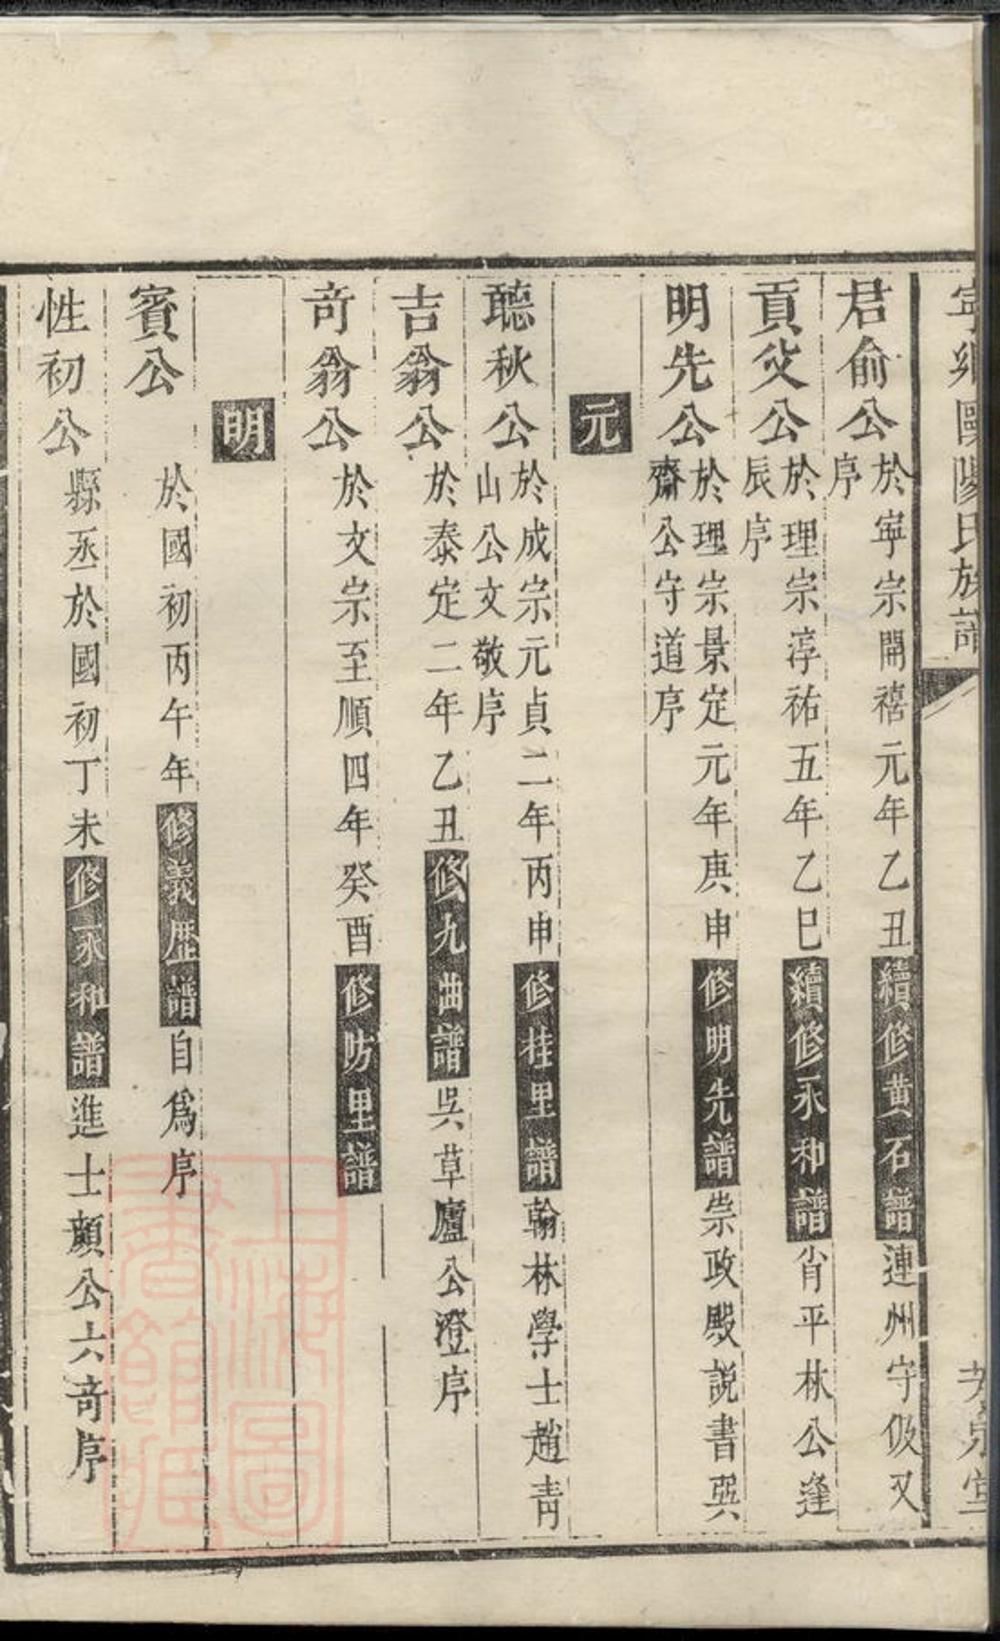 寧鄉歐陽氏族譜
君俞公於寧宗開禧元年乙丑續修黄石譜連州守伋又
序
貢父公於理宗淳祐五年乙巳續修永和譜肖平林公逢
辰序
明先公於理宗景定元年庚申修明先譜崇政殿説書巽
齋公守道序
元
聽秋公於成宗元貞二年丙申修桂里譜翰林學士趙青
山公文敬序
吉翁公於泰定二年乙丑修九曲譜吳草廬公澄序
奇翁公於文宗至順四年癸酉修防里譜
明
賓公於國初丙午年修義歷譜自爲序
性初公縣丞於國初丁未修永和譜進士顔公六奇序
上海圖書館藏